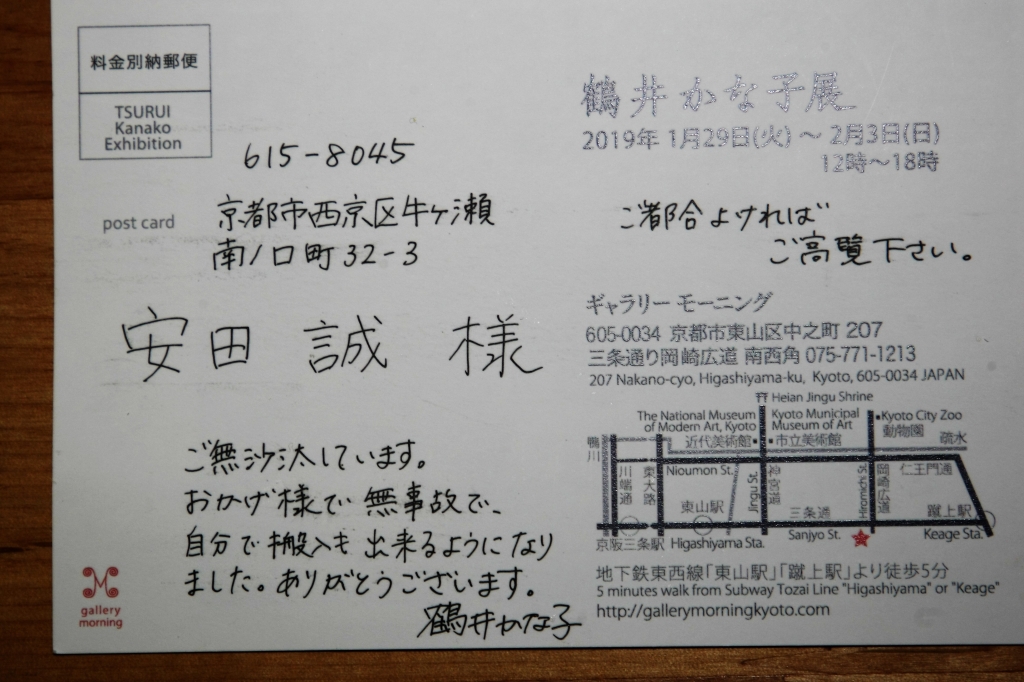 料金別納郵便
TSURUI
Kanako
Exhibition
post card
615-8045
京都市西京区牛ヶ瀬
南ノ口町32-3
安田 誠 様
ご無沙汰しています。
おかげ様で無事故で、
自分で搬入も出来るようになり
ました。ありがとうございます。
鶴井かな子
gallery
morning
鶴井かな子展
2019年 1月29日(火) ～ 2月3日(日)
12時～18時
ご都合よければ
ご高覧下さい。
ギャラリー モーニング
605-0034 京都市東山区中之町 207
三条通り岡崎広道 南西角 075-771-1213
207 Nakano-cyo, Higashiyama-ku, Kyoto, 605-0034 JAPAN
Heian Jingu Shrine
The National Museum
of Modern Art, Kyoto
近代美術館
Kyoto Municipal
Museum of Art
市立美術館
Kyoto City Zoo
動物園
疏水
鴨川
川端通
東大路
Nioumon St.
Jingu St.
神宮道
Hiromichi St.
岡崎広道
仁王門通
東山駅
三条通
蹴上駅
京阪三条駅
Higashiyama Sta.
Sanjyo St.
Keage Sta.
地下鉄東西線「東山駅」「蹴上駅」より徒歩5分
5 minutes walk from Subway Tozai Line "Higashiyama" or "Keage"
http://gallerymorningkyoto.com